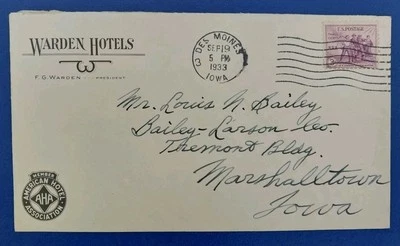 WARDEN HOTELS
F. G. WARDEN PRESIDENT
DES MOINES
3
SEP 19
5 PM
1933
IOWA
U.S. POSTAGE
Mr. Louis N. Bailey
Bailey-Larson Co.
Tremont Bldg.
Marshalltown
Iowa
MEMBER
AMERICAN HOTEL
AHA
ASSOCIATION